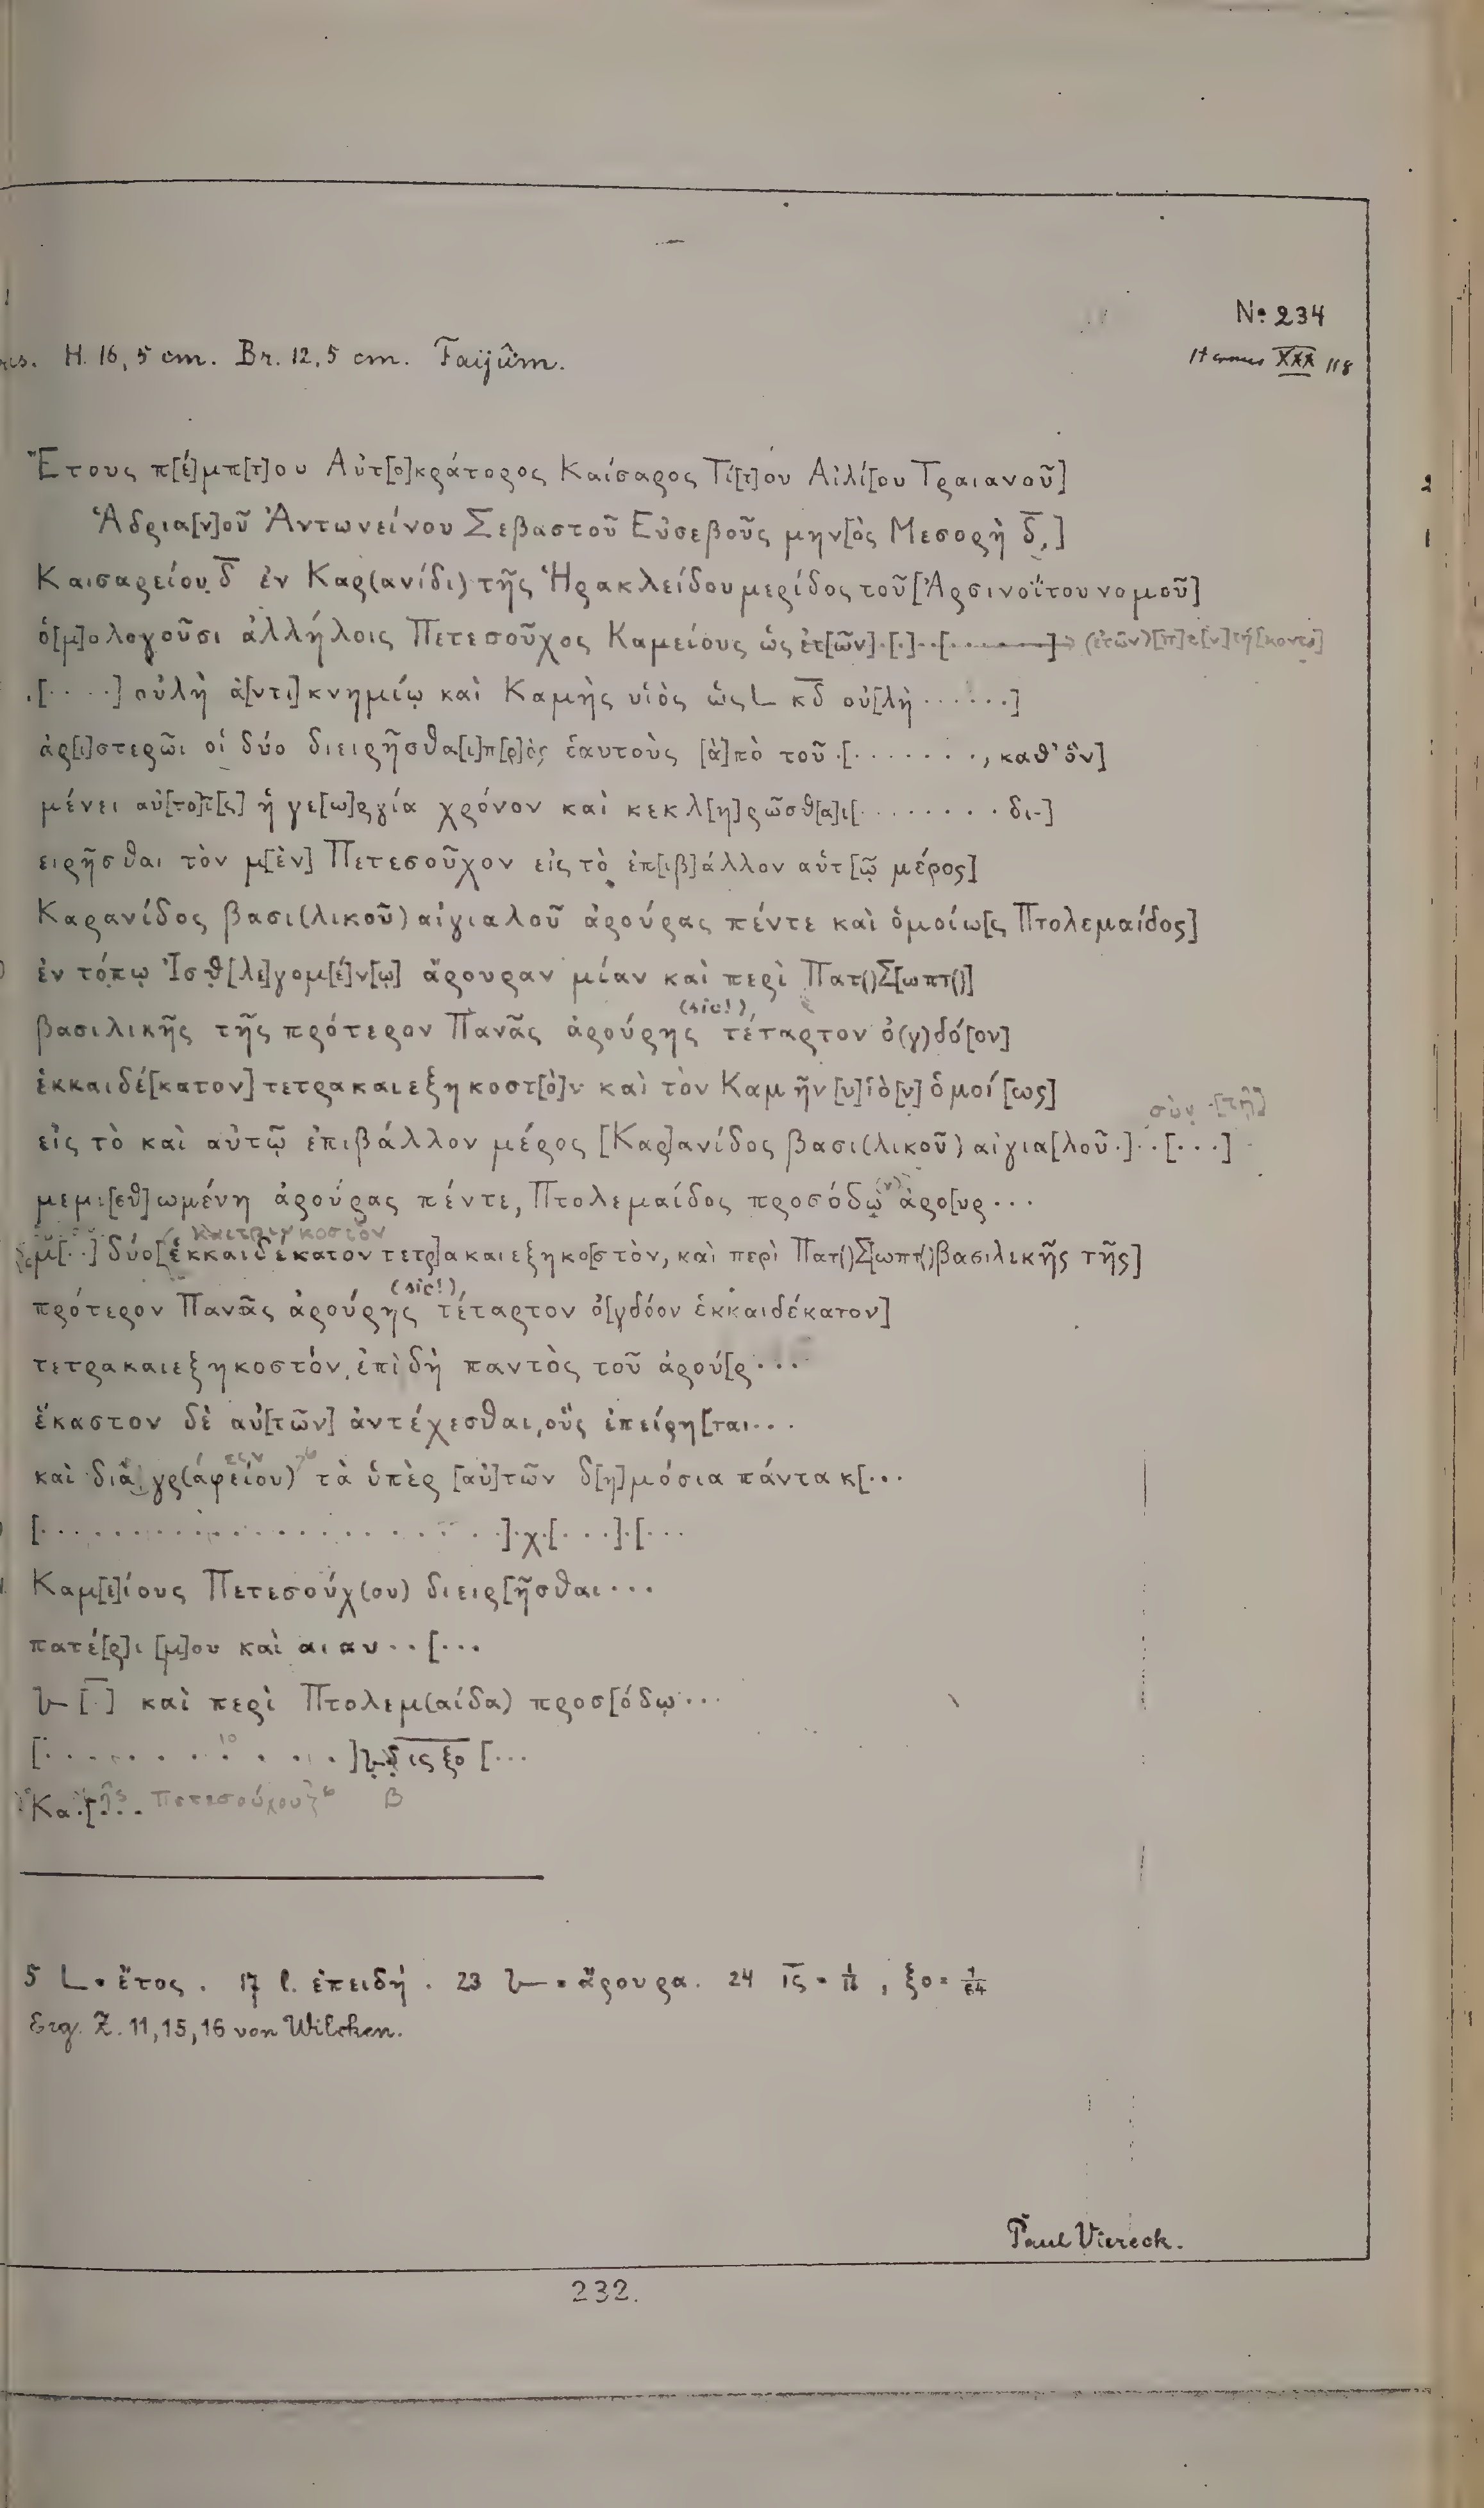 No 234
H. 16,5 cm. Br. 12,5 cm. Faijûm.
Hermes XXX 118
Ἔτους π[έ]μπ[τ]ου Αὐτ[ο]κράτορος Καίσαρος Τί[τ]ου Αἰλί[ου Τραιανοῦ]
Ἁδρια[ν]οῦ Ἀντωνείνου Σεβαστοῦ Εὐσεβοῦς μην[ὸς Μεσορὴ δ̅,]
Καισαρείου δ̅ ἐν Καρ(ανίδι) τῆς Ἡρακλείδου μερίδος τοῦ [Ἀρσινοΐτου νομοῦ]
ὁ[μ]ολογοῦσι ἀλλήλοις Πετεσοῦχος Καμείους ὡς ἐτ[ῶν]·[·]··[·······] (ἐτῶν) [π]ε[ν]τή[κοντα]
.[····] οὐλὴ ἀ[ντι]κνημίῳ καὶ Καμῆς υἱὸς ὡς L κδ̅ οὐ[λὴ ······]
ἀρ[ι]στερῶι οἱ δύο διειρῆσθα[ι] π[ρ]ὸς ἑαυτοὺς [ἀ]πὸ τοῦ ·[·······, καθ' ὃν]
μένει αὐ[το]ῖ[ς] ἡ γε[ω]ργία χρόνον καὶ κεκλ[η]ρῶσθ[α]ι[········ δι-]
ειρῆσθαι τὸν μ[ὲν] Πετεσοῦχον εἰς τὸ ἐπ[ιβ]άλλον αὐτ[ῷ μέρος]
Καρανίδος βασι(λικοῦ) αἰγιαλοῦ ἀρούρας πέντε καὶ ὁμοίω[ς Πτολεμαίδος]
ἐν τόπῳ Ἰσθ[λε]γομ[έ]ν[ῳ] ἄρουραν μίαν καὶ περὶ Πατ() Σ[ωπτ()]
(sic!)
βασιλικῆς τῆς πρότερον Πανᾶς ἀρούρης τέταρτον ὀ(γ)δό[ον]
ἑκκαιδέ[κατον] τετρακαιεξηκοστ[ὸ]ν καὶ τὸν Καμῆν [υ]ἱὸ[ν] ὁμοί[ως]
σὺν [τῇ]
εἰς τὸ καὶ αὐτῷ ἐπιβάλλον μέρος [Καρ]ανίδος βασι(λικοῦ) αἰγια[λοῦ·]··[···]
μεμι[σθ]ωμένη ἀρούρας πέντε, Πτολεμαίδος προσόδῳ ἀρο[υρ···
μ[··] δύο [ἑκκαιδέκατον τετρ]ακαιεξηκο[στὸν, καὶ περὶ Πατ() Σ[ωπτ() βασιλικῆς τῆς]
(sic!)
πρότερον Πανᾶς ἀρούρης τέταρτον ὀ[γδόον ἑκκαιδέκατον]
τετρακαιεξηκοστόν, ἐπὶ δὴ παντὸς τοῦ ἀρού[ρ···
ἕκαστον δὲ αὐ[τῶν] ἀντέχεσθαι, οὓς ἐπείρη[ται···
καὶ διὰ γρ(αφείου) τὰ ὑπὲρ [αὐ]τῶν δ[η]μόσια πάντα κ[···
[····················]·χ·[···]·[···
Καμ[ε]ίους Πετεσούχ(ου) διειρ[ῆσθαι···
πατέ[ρ]ι [μ]ου καὶ αι αν··[···
[·] καὶ περὶ Πτολεμ(αίδα) προσ[όδῳ···
[···········] δ ις ξο [···
Κα·[··· Πετεσούχου
5 L = ἔτος. 17 l. ἐπειδή. 23 = ἄρουρα. 24 ις̅ = 1/16, ξο = 1/64
Erg. Z. 11, 15, 16 von Wilcken.
Paul Viereck.
232.